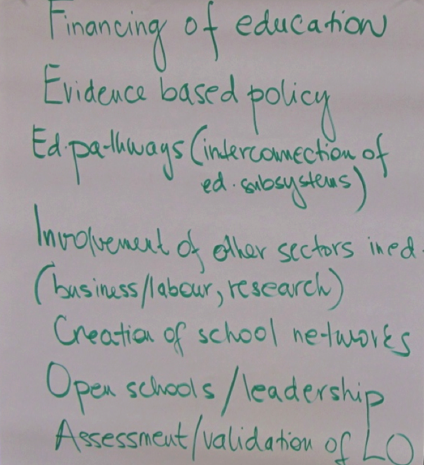 Financing of education
Evidence based policy
Ed. pathways (interconnection of
ed. subsystems)
Involvement of other sectors in ed.
(business/labour, research)
Creation of school networks
Open schools/leadership
Assessment/validation of LO